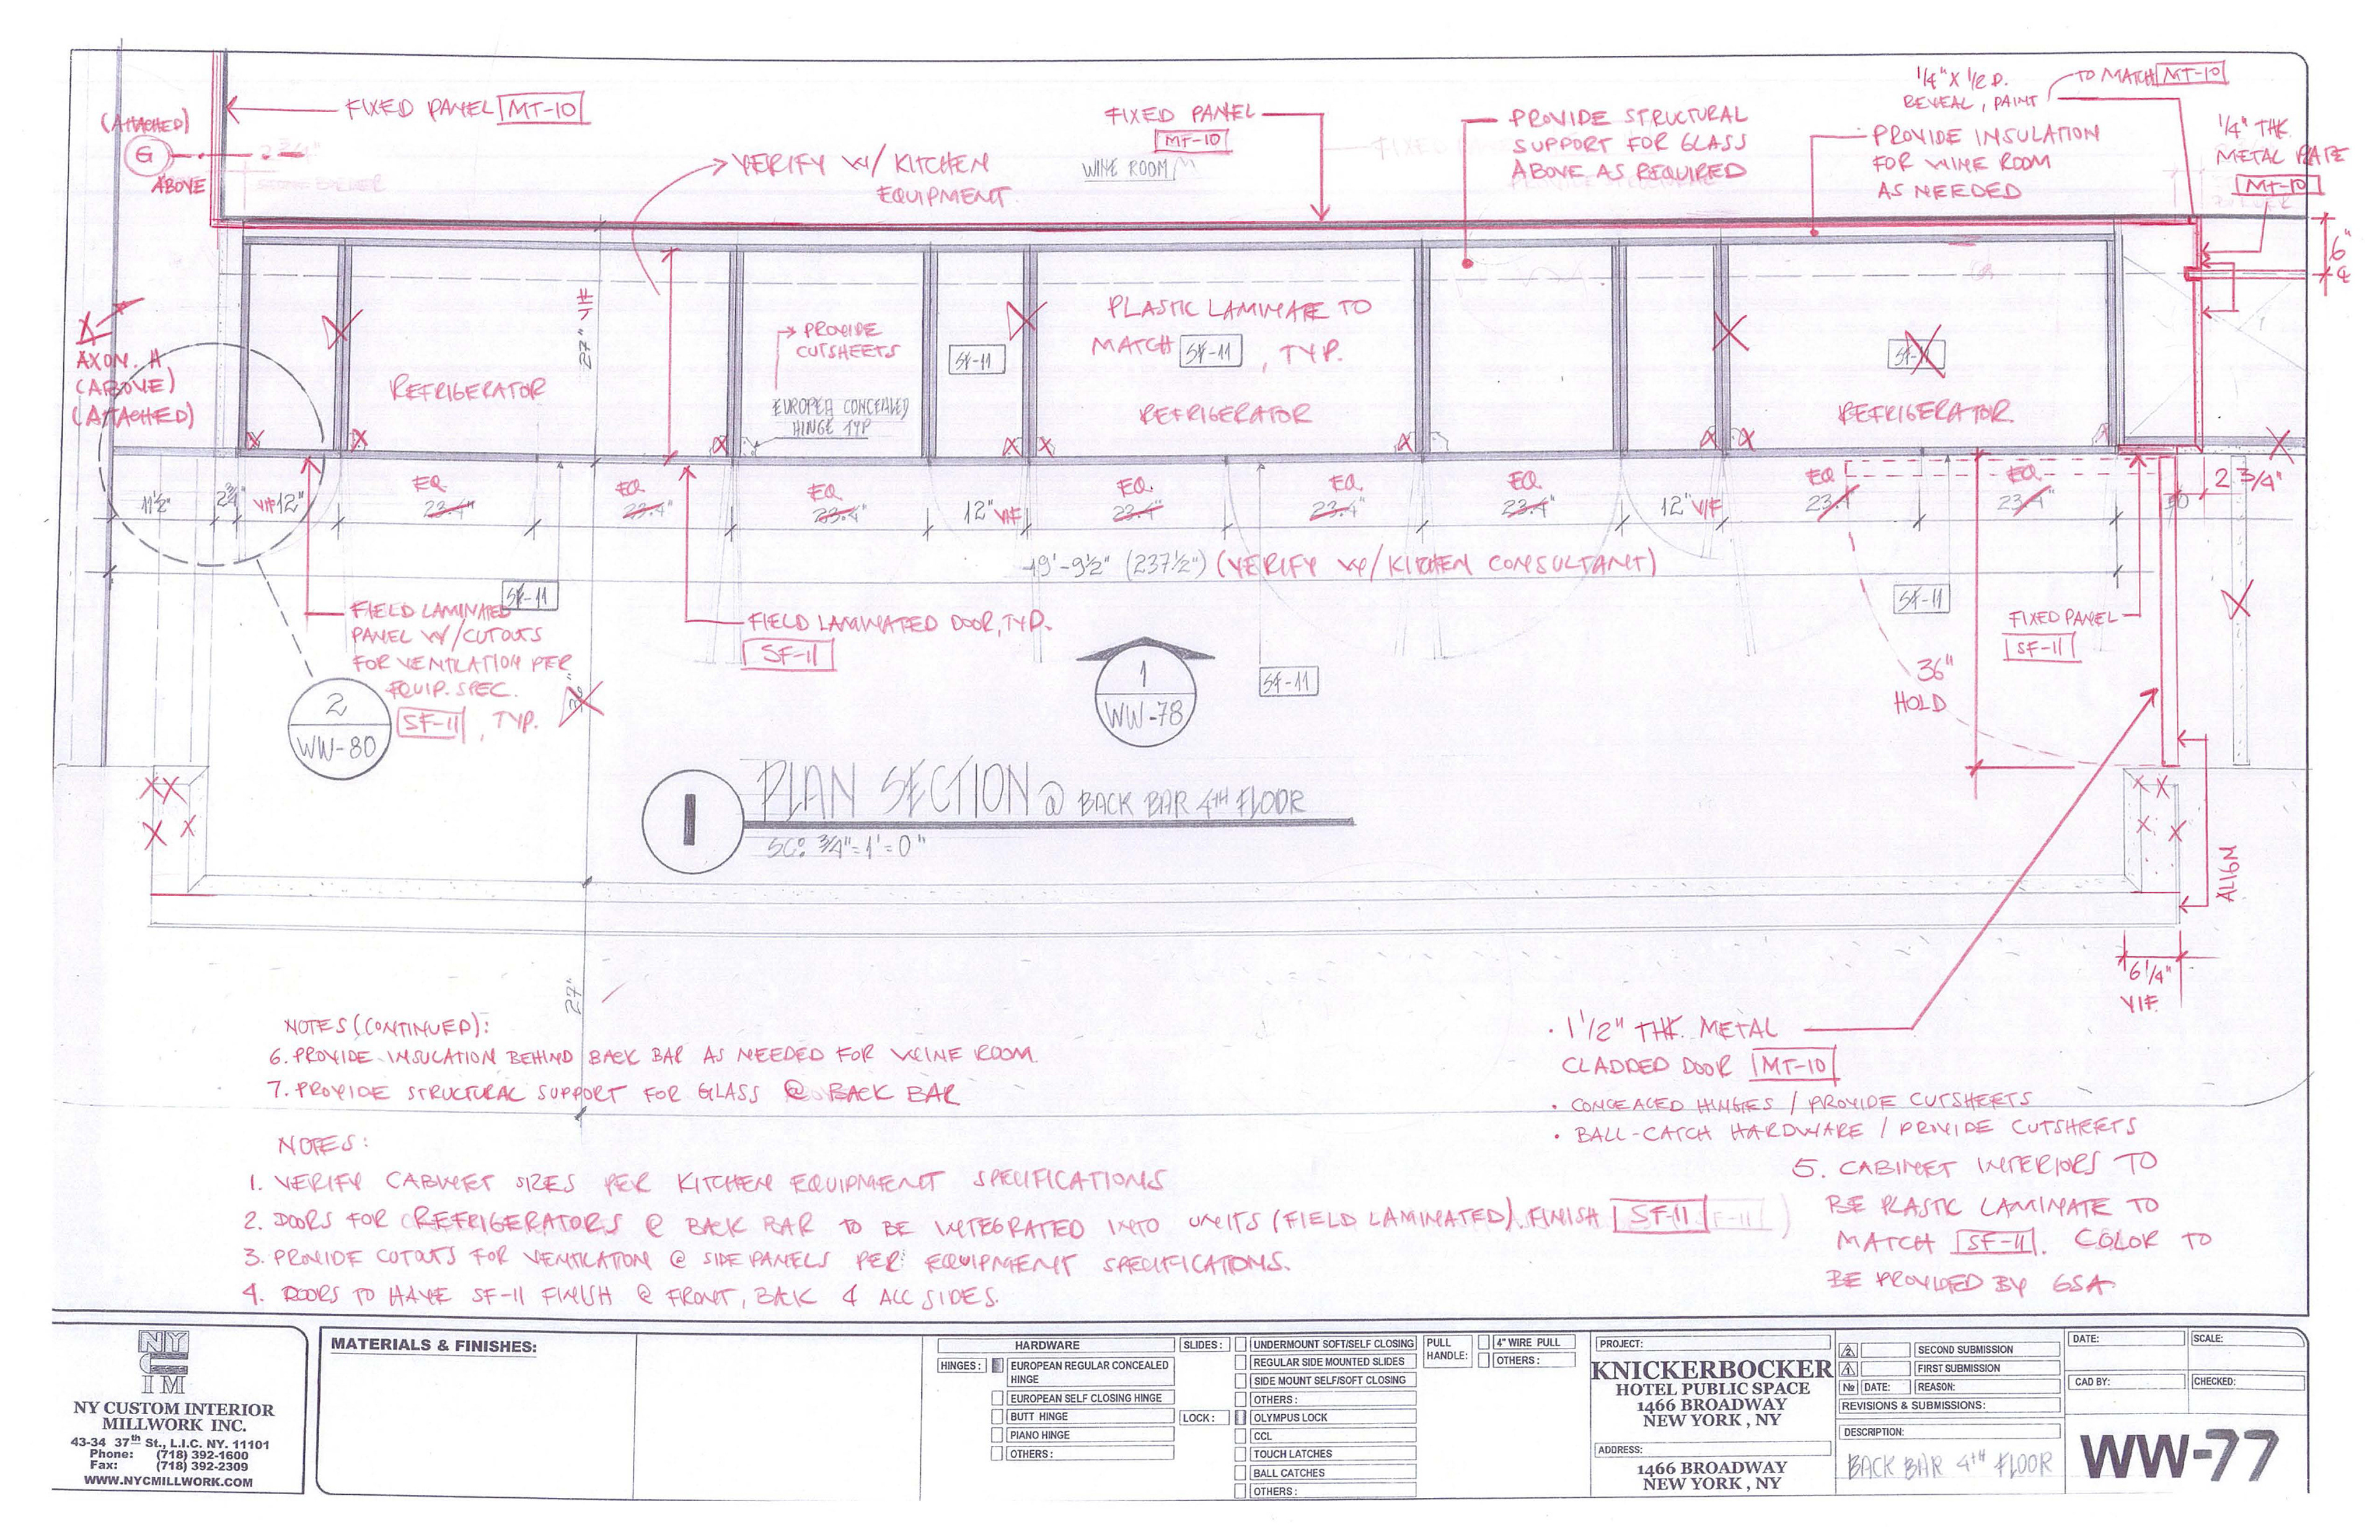 FIXED PANEL MT-10
(ATTACHED)
G
ABOVE
VERIFY W/ KITCHEN
EQUIPMENT
FIXED PANEL
MT-10
WINE ROOM
PROVIDE STRUCTURAL
SUPPORT FOR GLASS
ABOVE AS REQUIRED
1/4" X 1/2 D.
REVEAL, PAINT
TO MATCH MT-10
PROVIDE INSULATION
FOR WINE ROOM
AS NEEDED
1/4" THK.
METAL PLATE
MT-10
6"
AXON. H
(ABOVE)
(ATTACHED)
27"
REFRIGERATOR
PROVIDE
CUTSHEETS
CONCEALED
HINGE TYP
SF-11
PLASTIC LAMINATE TO
MATCH SF-11, TYP.
REFRIGERATOR
REFRIGERATOR
11 1/2"
VIF 12"
EQ
23.4"
EQ.
23.4"
EQ
23.4"
12" VIF
EQ.
23.4"
EQ.
23.4"
EQ
23.4"
12" VIF
EQ
23.4
EQ.
23.4"
2 3/4"
19'-9 1/2" (237 1/2") (VERIFY W/ KITCHEN CONSULTANT)
SF-11
FIELD LAMINATED
PANEL W/CUTOUTS
FOR VENTILATION PER
EQUIP. SPEC.
SF-11, TYP.
FIELD LAMINATED DOOR, TYP.
SF-11
SF-11
SF-11
FIXED PANEL
SF-11
36"
HOLD
2
WW-80
1
WW-78
1
PLAN SECTION @ BACK BAR 4TH FLOOR
SC: 3/4"=1'=0"
ALIGN
6 1/4"
VIF.
27"
NOTES (CONTINUED):
6. PROVIDE INSULATION BEHIND BACK BAR AS NEEDED FOR WINE ROOM.
7. PROVIDE STRUCTURAL SUPPORT FOR GLASS @ BACK BAR
• 1 1/2" THK. METAL
CLADDED DOOR MT-10
• CONCEALED HINGES / PROVIDE CUTSHEETS
• BALL-CATCH HARDWARE / PROVIDE CUTSHEETS
NOTES:
1. VERIFY CABINET SIZES PER KITCHEN EQUIPMENT SPECIFICATIONS
2. DOORS FOR REFRIGERATORS @ BACK BAR TO BE INTEGRATED INTO UNITS (FIELD LAMINATED). FINISH SF-11
3. PROVIDE CUTOUTS FOR VENTILATION @ SIDE PANELS PER EQUIPMENT SPECIFICATIONS.
4. DOORS TO HAVE SF-11 FINISH @ FRONT, BACK & ALL SIDES.
5. CABINET INTERIORS TO
BE PLASTIC LAMINATE TO
MATCH SF-11. COLOR TO
BE PROVIDED BY GSA.
NY
IM
NY CUSTOM INTERIOR
MILLWORK INC.
43-34 37th St., L.I.C. NY. 11101
Phone: (718) 392-1600
Fax: (718) 392-2309
WWW.NYCMILLWORK.COM
MATERIALS & FINISHES:
HARDWARE
HINGES:
EUROPEAN REGULAR CONCEALED
HINGE
EUROPEAN SELF CLOSING HINGE
BUTT HINGE
PIANO HINGE
OTHERS:
SLIDES:
UNDERMOUNT SOFT/SELF CLOSING
REGULAR SIDE MOUNTED SLIDES
SIDE MOUNT SELF/SOFT CLOSING
OTHERS:
LOCK:
OLYMPUS LOCK
CCL
TOUCH LATCHES
BALL CATCHES
OTHERS:
PULL
HANDLE:
4" WIRE PULL
OTHERS:
PROJECT:
KNICKERBOCKER
HOTEL PUBLIC SPACE
1466 BROADWAY
NEW YORK , NY
ADDRESS:
1466 BROADWAY
NEW YORK , NY
2 SECOND SUBMISSION
1 FIRST SUBMISSION
№ DATE: REASON:
REVISIONS & SUBMISSIONS:
DESCRIPTION:
BACK BAR 4TH FLOOR
DATE:
SCALE:
CAD BY:
CHECKED:
WW-77